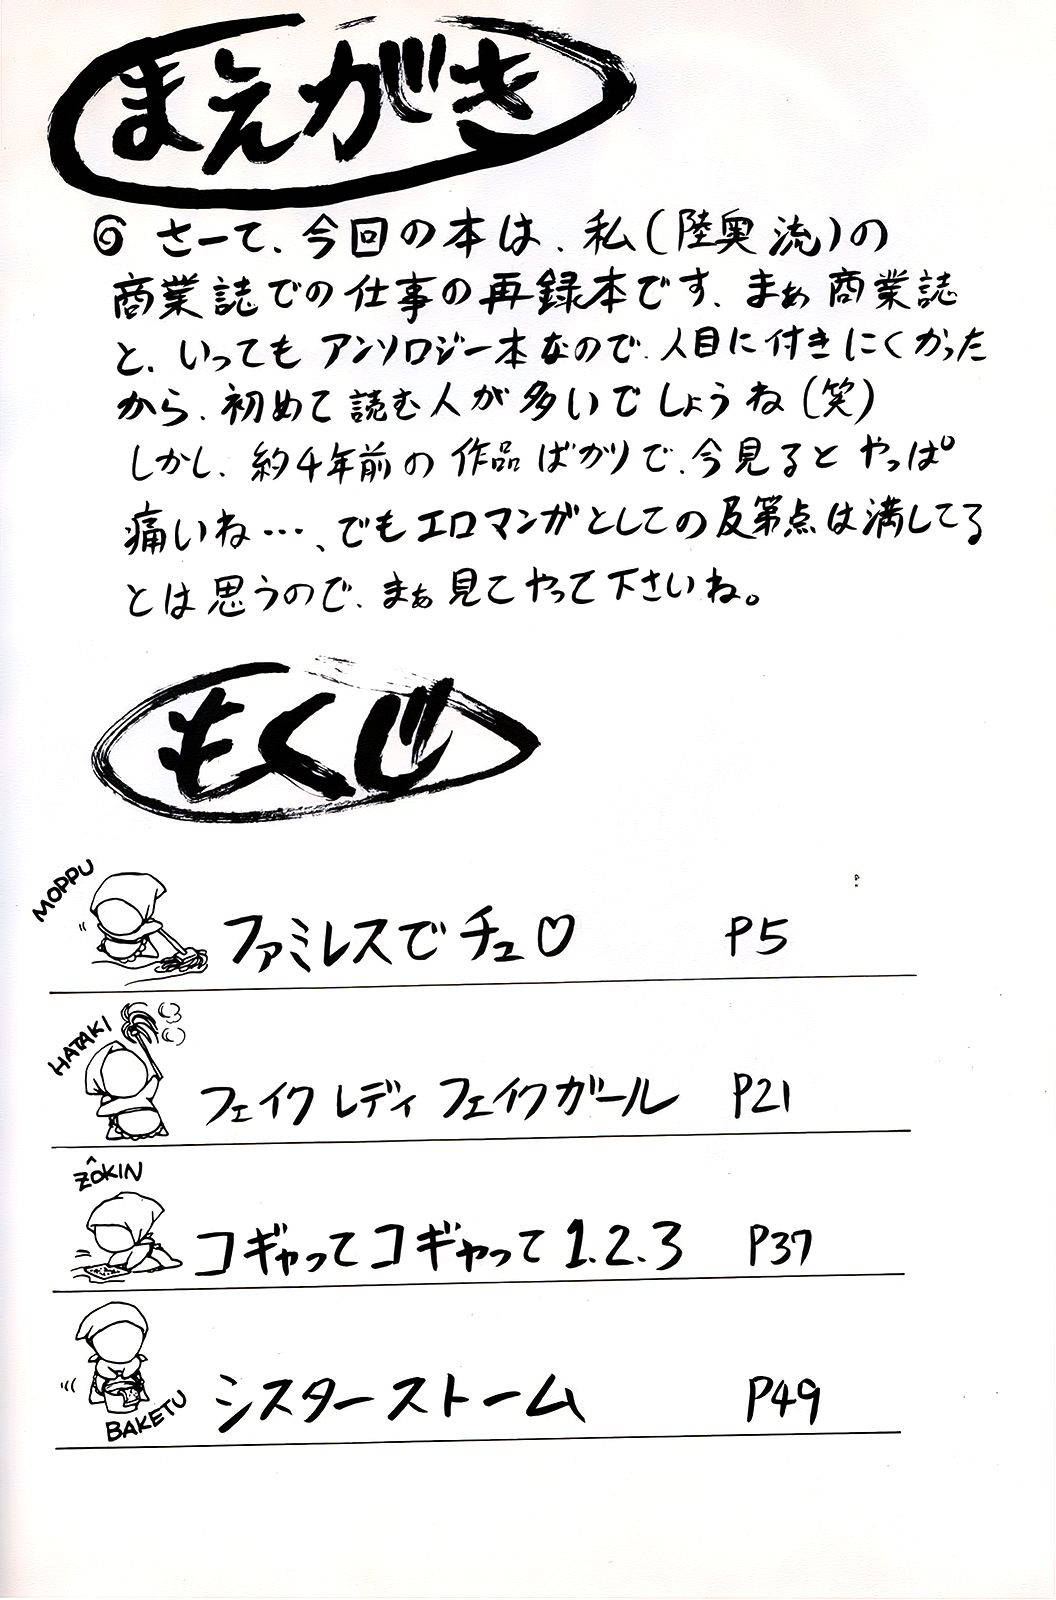 まえがき
さーて、今回の本は、私(陸奥 流)の
商業誌での仕事の再録本です、まぁ商業誌
と、いっても アンソロジー本なので、人目に付きにくかった
から、初めて読む人が多いでしょうね(笑)
しかし、約4年前の作品ばかりで、今見るとやっぱ
痛いね…、でもエロマンガとしての及第点は満してる
とは思うので、まぁ見てやって下さいね。
もくじ
MOPPU
ファミレスでチュ♡ P5
HATAKI
フェイク レディ フェイクガール P21
ZÔKIN
コギャってコギャって 1.2.3 P37
シスターストーム P49
BAKETU